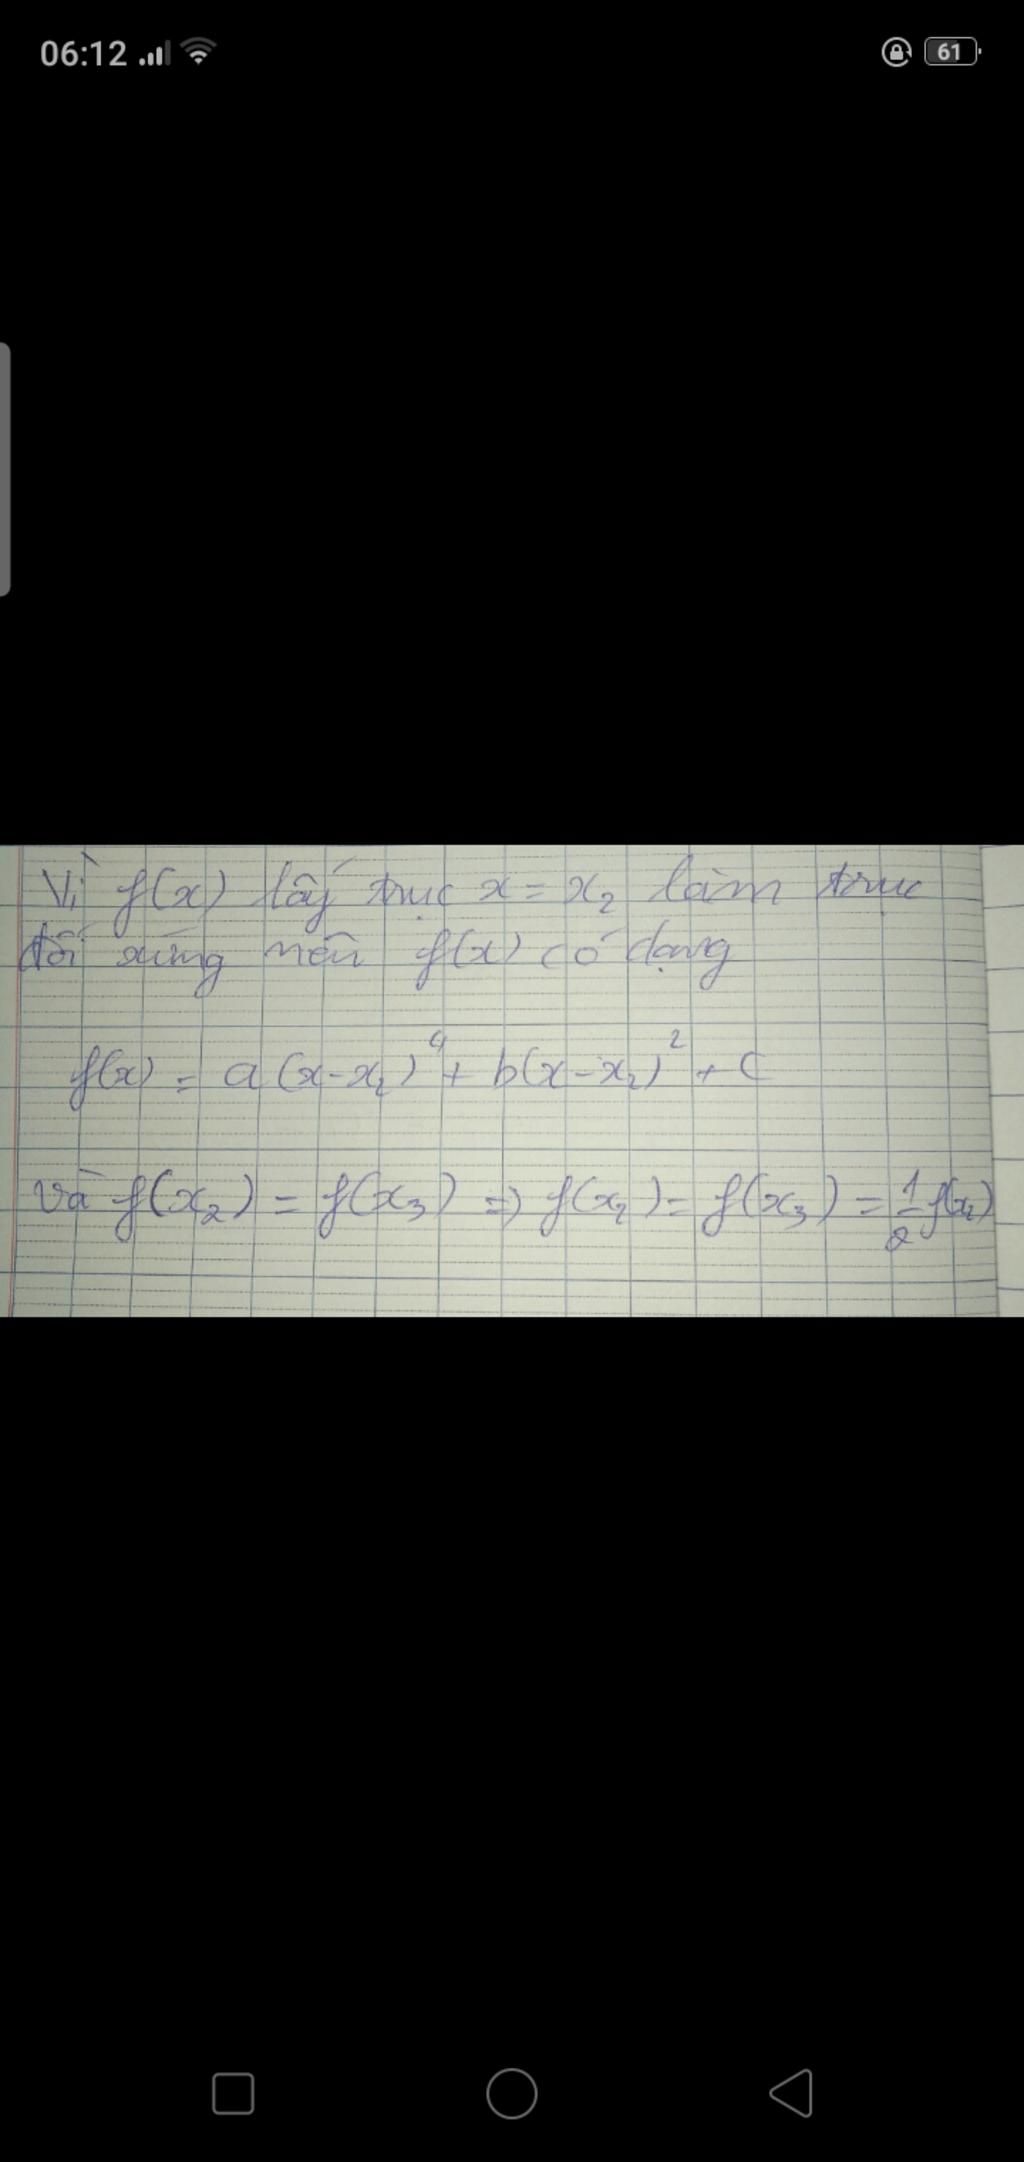 06:12
61
Vì f(x) lấy trục x = x₂ làm trục
đối xứng nên f(x) có dạng
f(x) = a(x-x₂)⁴ + b(x-x₂)² + c
và f(x₂) = f(x₃) => f(x₂) = f(x₃) = 1/2 f(x₂)